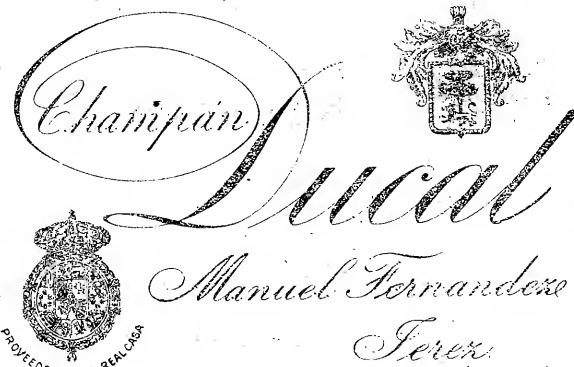 Champán
Ducal
Manuel Fernandez
Jerez
REAL CASA